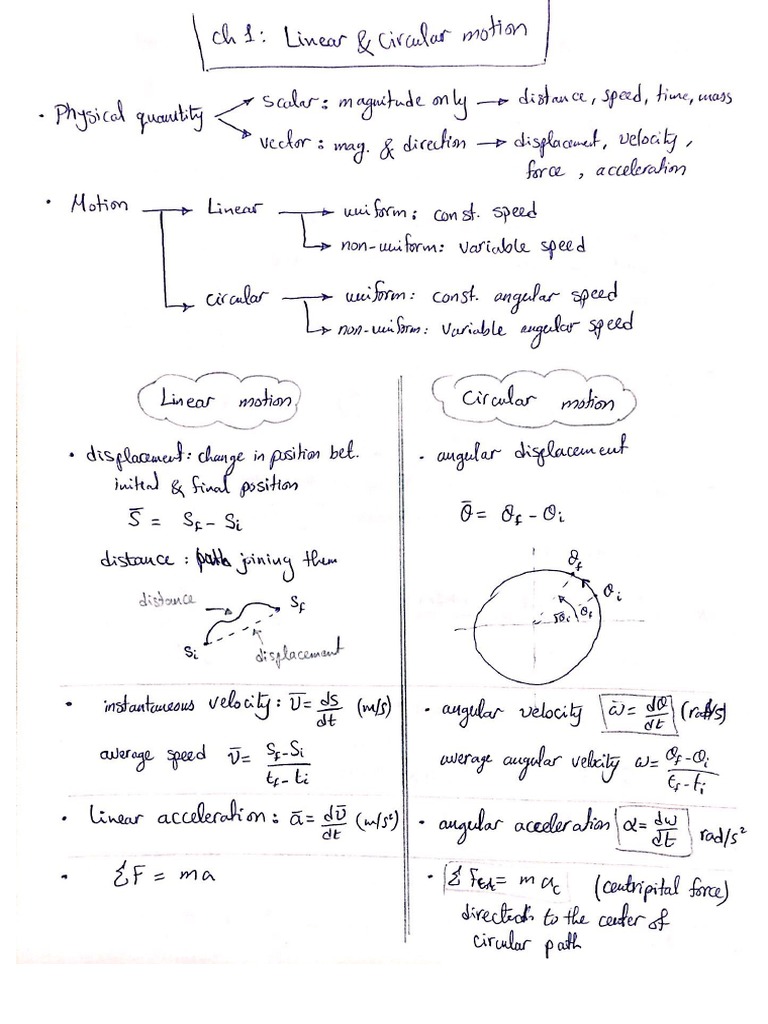 ch 1: Linear & Circular motion
• Physical quantity
scalar: magnitude only → distance, speed, time, mass
vector: mag. & direction → displacement, velocity,
force, acceleration
• Motion → Linear → uniform: const. speed
non-uniform: variable speed
circular → uniform: const. angular speed
non-uniform: variable angular speed
Linear motion
• displacement: change in position bet.
initial & final position
S̄ = Sf - Si
distance: path joining them
distance
Sf
Si
displacement
• instantaneous velocity: Ū = ds/dt (m/s)
average speed Ū = Sf-Si / tf-ti
• linear acceleration: ā = dŪ/dt (m/s²)
• ΣF = ma
Circular motion
• angular displacement
θ̄ = θf - θi
θf
θi
θi
θf
• angular velocity ω̄ = dθ/dt (rad/s)
average angular velocity ω = θf-θi / tf-ti
• angular acceleration α = dω/dt rad/s²
• ΣFext = m ac (centripital force)
directed to the center of
circular path